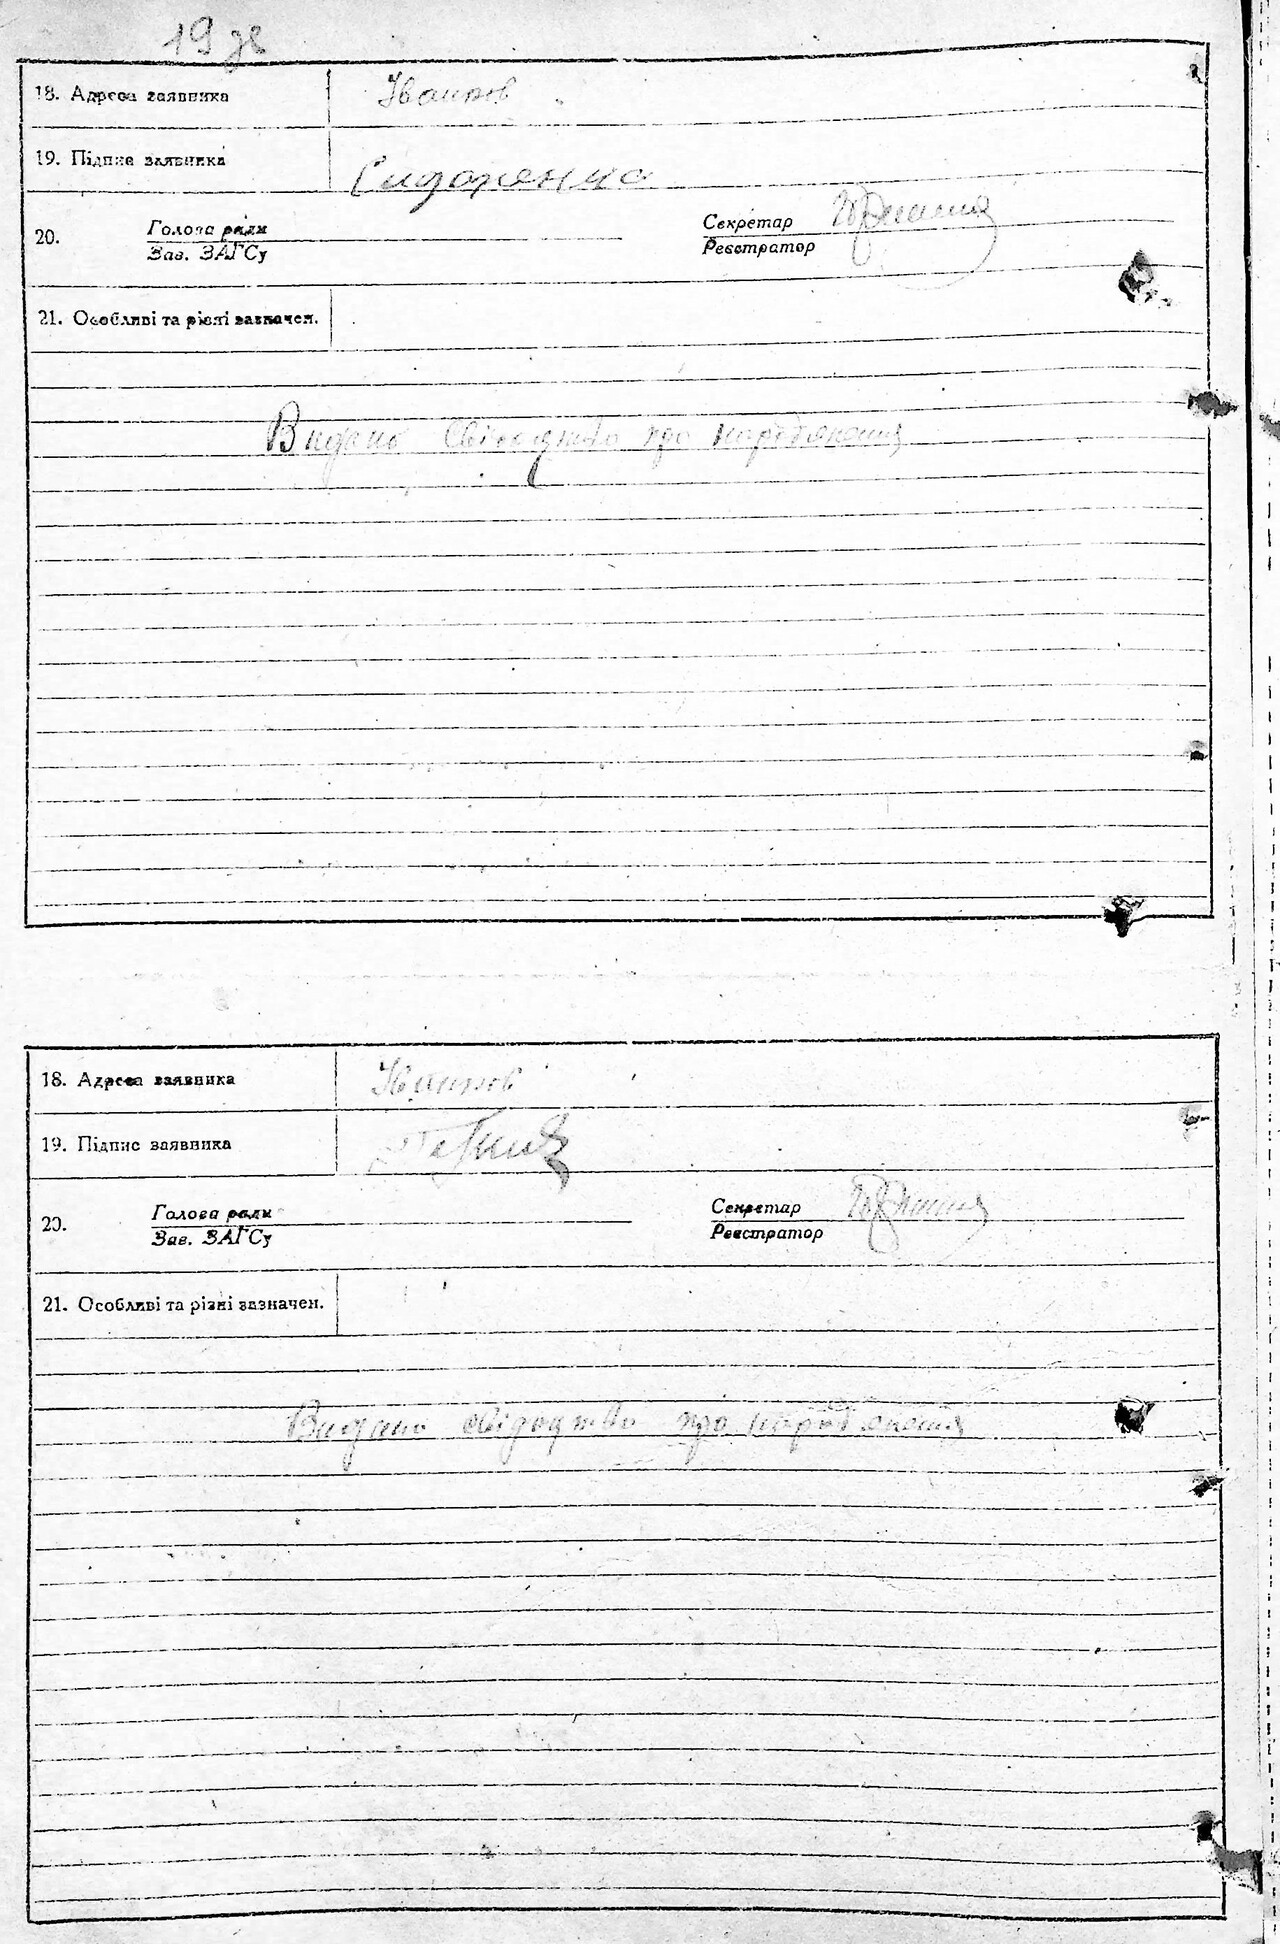 19 зв
18. Адреса заявника Іванків
19. Підпис заявника Сидоренко
20. Голова ради Секретар
Зав. ЗАГСу Реєстратор
21. Особливі та різні зазначен.
Видано свідоцтво про народження
18. Адреса заявника Іванків
19. Підпис заявника
20. Голова ради Секретар
Зав. ЗАГСу Реєстратор
21. Особливі та різні зазначен.
Видано свідоцтво про народження